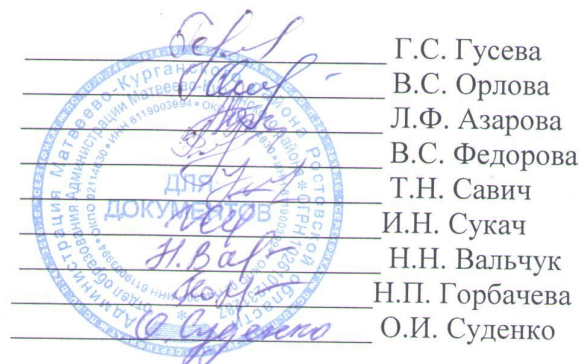 Г.С. Гусева
В.С. Орлова
Л.Ф. Азарова
В.С. Федорова
Т.Н. Савич
И.Н. Сукач
Н.Н. Вальчук
Н.П. Горбачева
О.И. Суденко
ДЛЯ
ДОКУМЕНТОВ
Администрация Матвеево-Курганского района Ростовской области
Отдел образования Администрации Матвеево-Курганского района
ИНН 6119003994
ОКПО 02114630
Н.Вал
О.Суденко